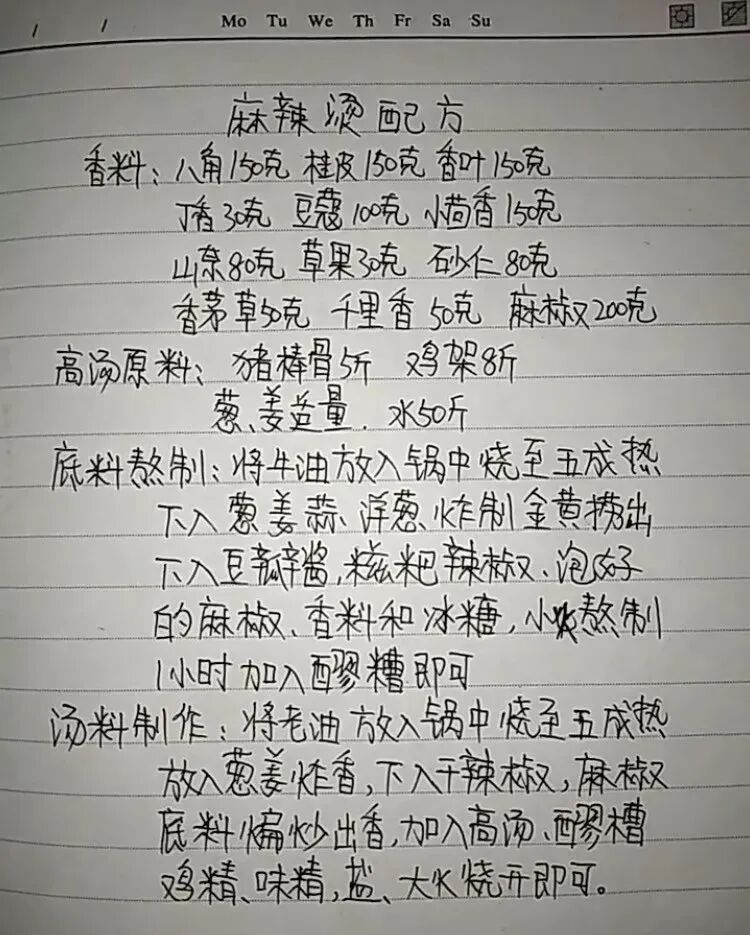 Mo Tu We Th Fr Sa Su
麻辣烫配方
香料:八角150克 桂皮150克 香叶150克
丁香30克 豆蔻100克 小茴香150克
山奈80克 草果30克 砂仁80克
香茅草50克 千里香50克 麻椒200克
高汤原料:猪棒骨5斤 鸡架8斤
葱、姜适量. 水50斤
底料熬制:将牛油放入锅中烧至五成热
下入葱姜蒜、洋葱、炸制金黄捞出
下入豆瓣酱,糍粑辣椒、泡好
的麻椒、香料和冰糖,小火熬制
1小时加入醪糟即可
汤料制作:将老油放入锅中烧至五成热
放入葱姜炸香,下入干辣椒,麻椒
底料煸炒出香,加入高汤、醪糟
鸡精、味精,盐、大火烧开即可。